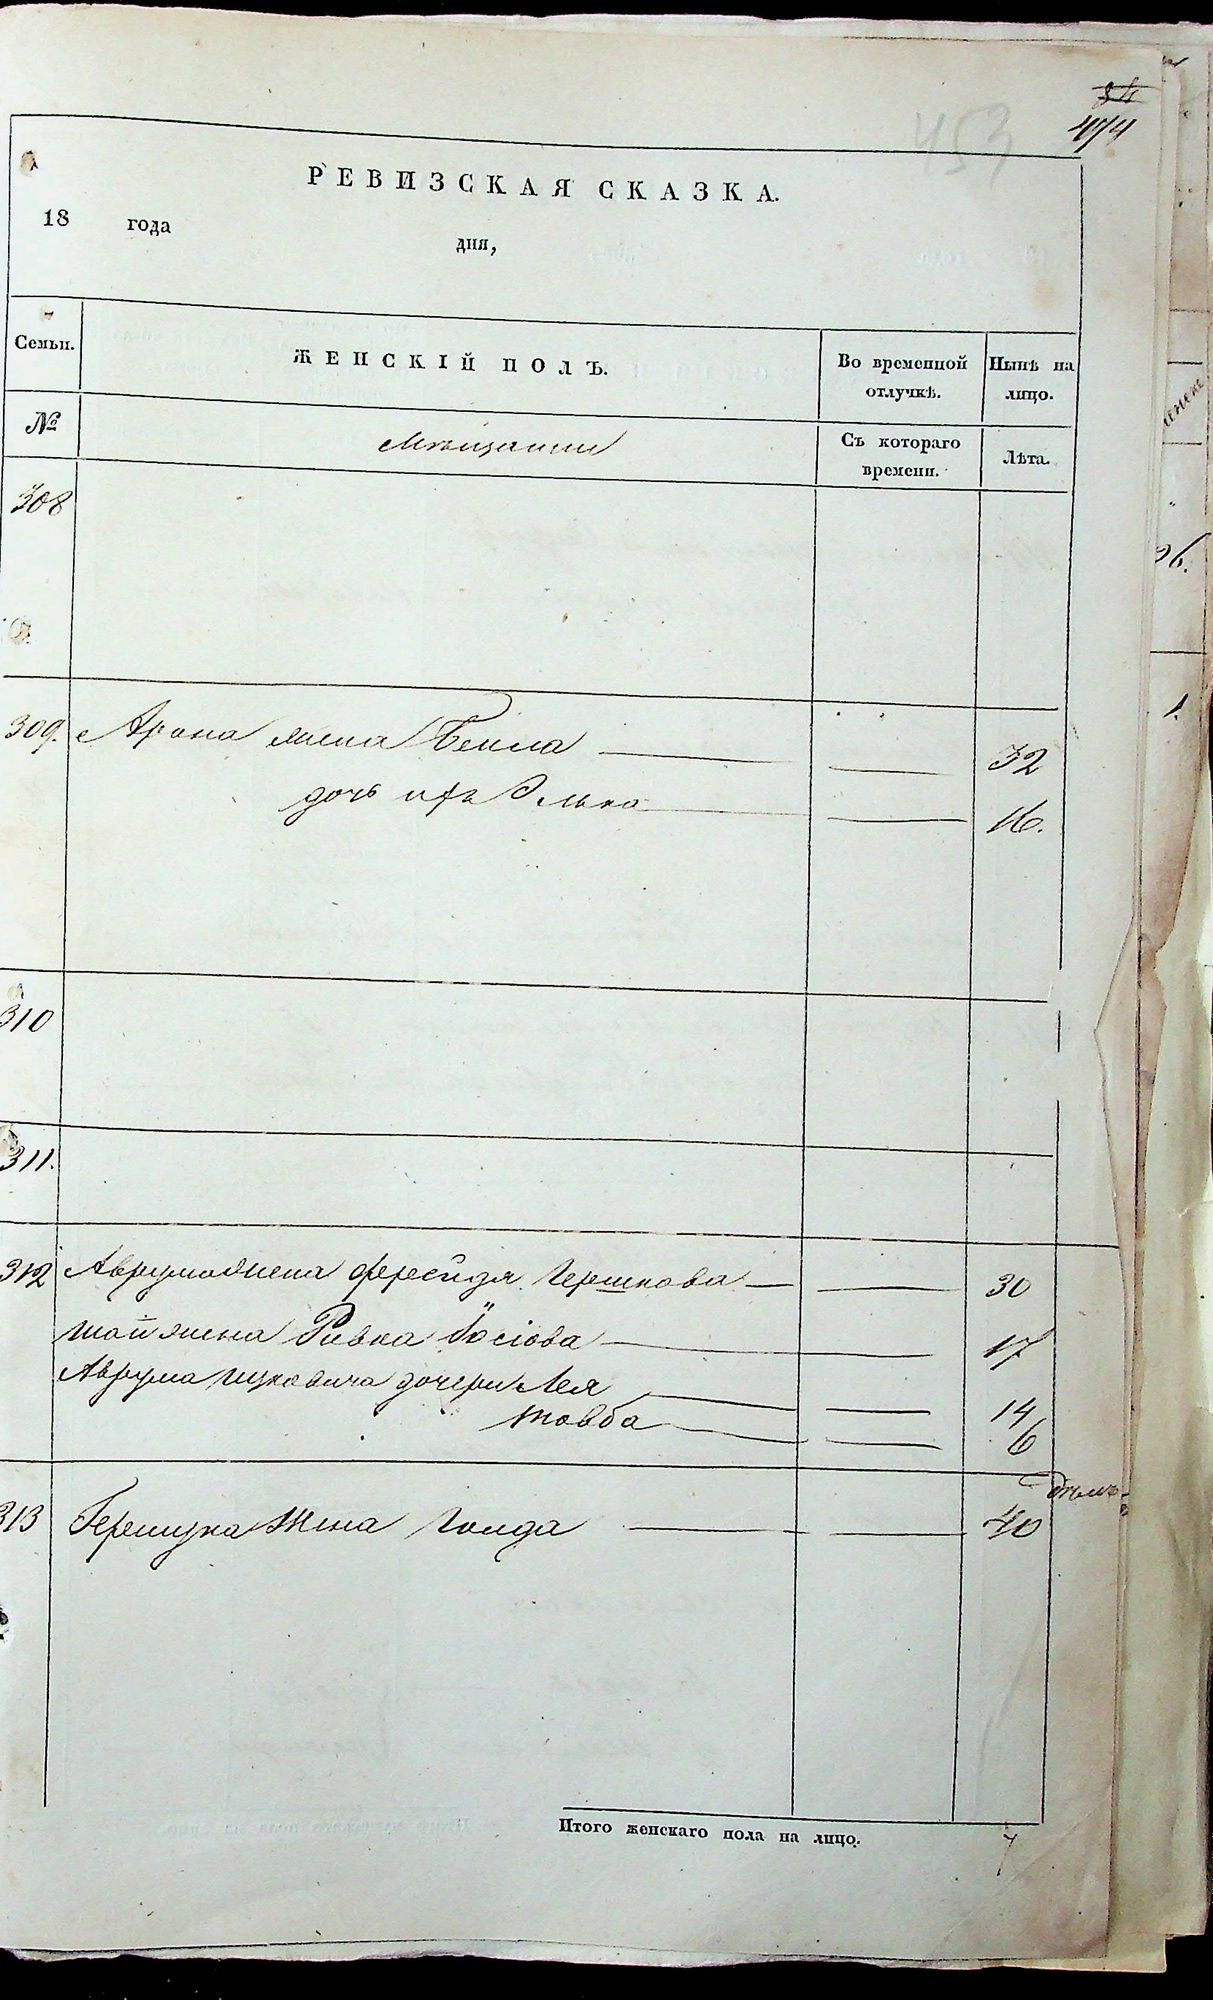 34
474
453
РЕВИЗСКАЯ СКАЗКА.
18 года
дня,
Семьи. ЖЕНСКІЙ ПОЛЪ. Во временной отлучкѣ. Нынѣ на лицо.
№ Мѣщании Съ котораго времени. Лѣта.
308
309. Арона жена Бейла 32
дочь ихъ Элька 16.
310
311.
312 Аврума жена Фрейда Гершкова 30
Шаи жена Ривка Іосіова 17
Аврума Ицковича дочери Лея 14
Товба 6
313 Гершка жена Голда 40
Итого женскаго пола на лицо. 7